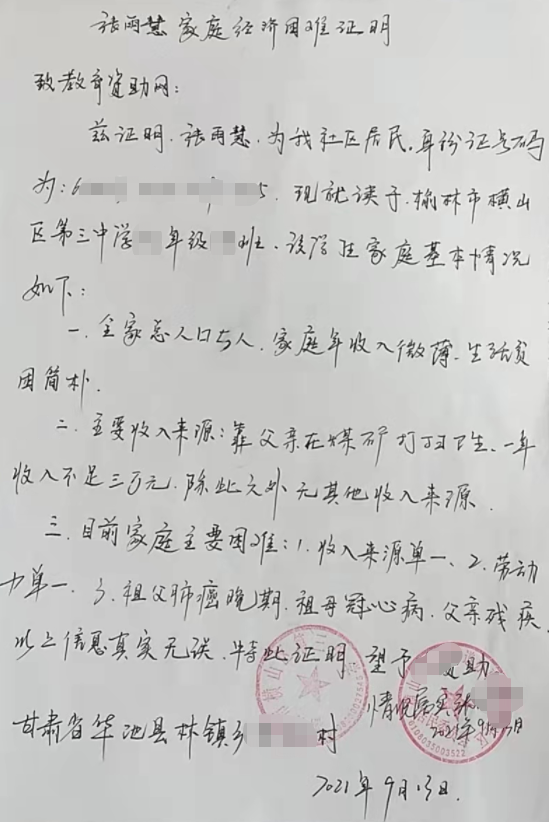 张雨慧家庭经济困难证明
致教育资助网：
兹证明，张雨慧，为我社区居民，身份证号码
为：6 5，现就读于榆林市横山
区第三中学 年级 班、该学生家庭基本情况
如下：
一、全家总人口5人，家庭年收入微薄，生活贫
困简朴．
二、主要收入来源：靠父亲在煤矿打扫卫生、一年
收入不足三万元，除此之外无其他收入来源．
三、目前家庭主要困难：1．收入来源单一、2．劳动
力单一、3．祖父肺癌晚期，祖母冠心病，父亲残疾．
以上信息真实无误，特此证明 望予 助
情况属实
2021年9月 日
甘肃省华池县林镇乡 村
2021年9月13日．